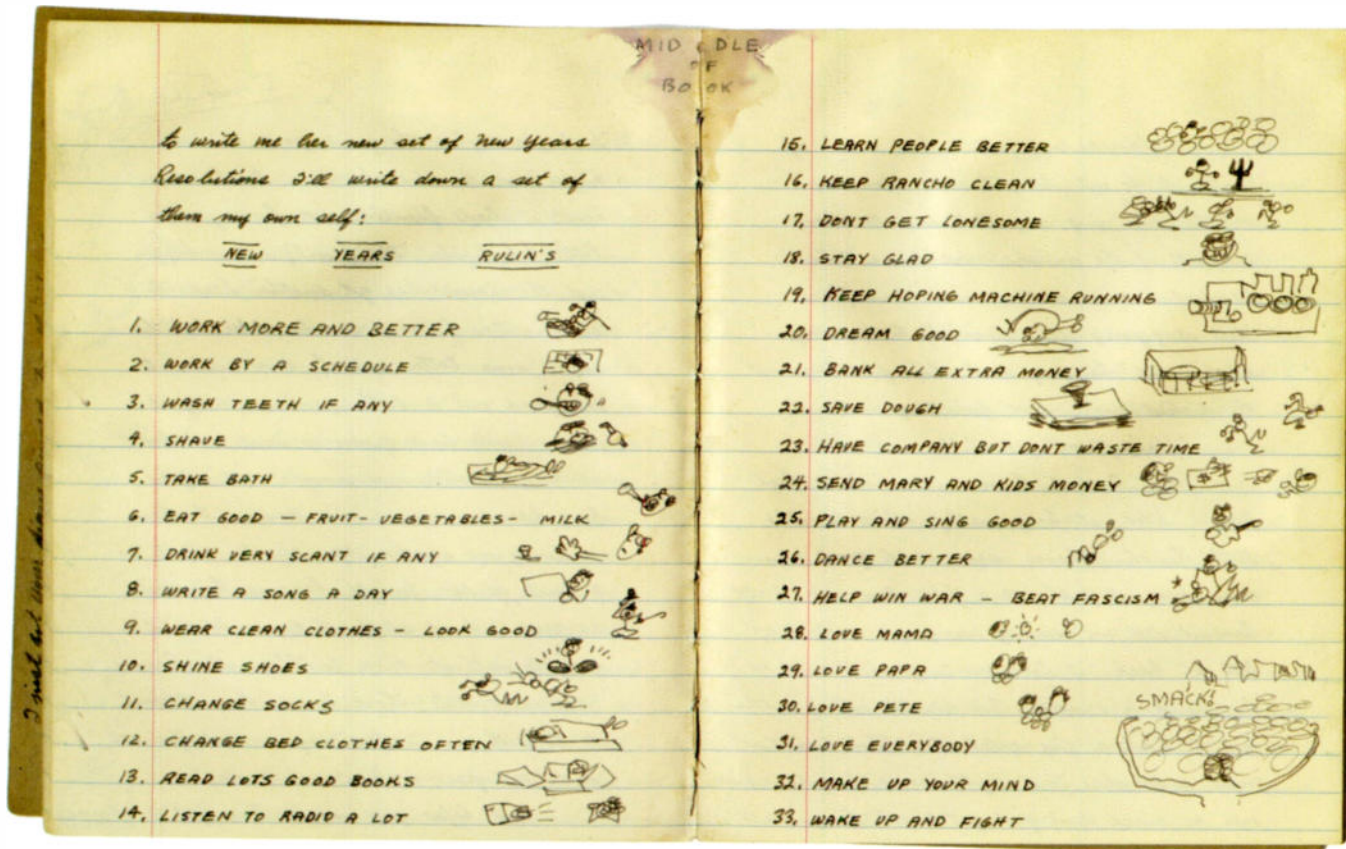 MIDDLE
OF
BOOK
to write me her new set of new years
Resolutions I'll write down a set of
them my own self:
NEW YEARS RULIN'S
1. WORK MORE AND BETTER
2. WORK BY A SCHEDULE
3. WASH TEETH IF ANY
4. SHAVE
5. TAKE BATH
6. EAT GOOD — FRUIT - VEGETABLES - MILK
7. DRINK VERY SCANT IF ANY
8. WRITE A SONG A DAY
9. WEAR CLEAN CLOTHES - LOOK GOOD
10. SHINE SHOES
11. CHANGE SOCKS
12. CHANGE BED CLOTHES OFTEN
13. READ LOTS GOOD BOOKS
14. LISTEN TO RADIO A LOT
15. LEARN PEOPLE BETTER
16. KEEP RANCHO CLEAN
17. DONT GET LONESOME
18. STAY GLAD
19. KEEP HOPING MACHINE RUNNING
20. DREAM GOOD
21. BANK ALL EXTRA MONEY
22. SAVE DOUGH
23. HAVE COMPANY BUT DONT WASTE TIME
24. SEND MARY AND KIDS MONEY
25. PLAY AND SING GOOD
26. DANCE BETTER
27. HELP WIN WAR - BEAT FASCISM
28. LOVE MAMA
29. LOVE PAPA
30. LOVE PETE
SMACK!
31. LOVE EVERYBODY
32. MAKE UP YOUR MIND
33. WAKE UP AND FIGHT